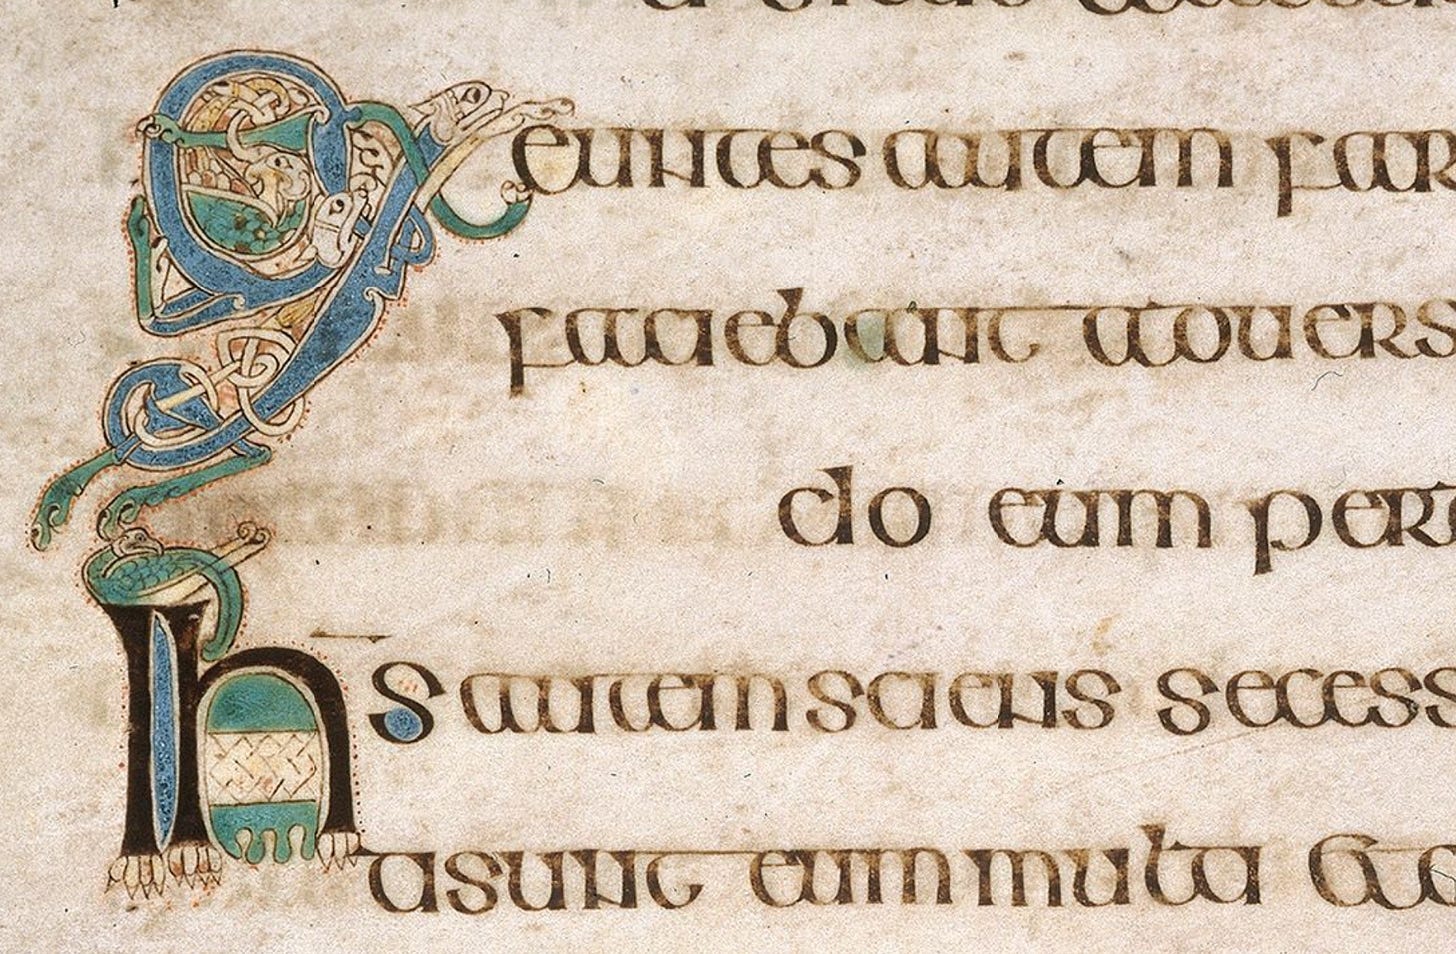 Exeuntes autem far
faciebant aduers
do eum per
Ihs autem sciens secess
asunt eum multa